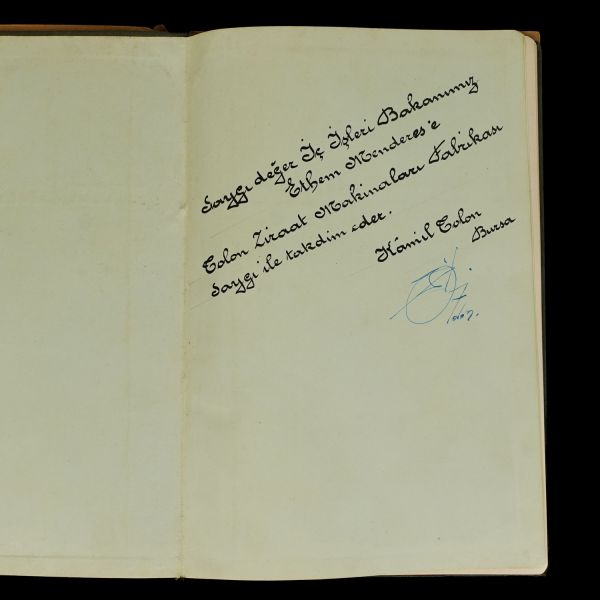 Saygı değer İç İşleri Bakanımız
Ethem Menderes'e
Tolon Ziraat Makinaları Fabrikası
Saygı ile takdim eder.
Kâmil Tolon
Bursa